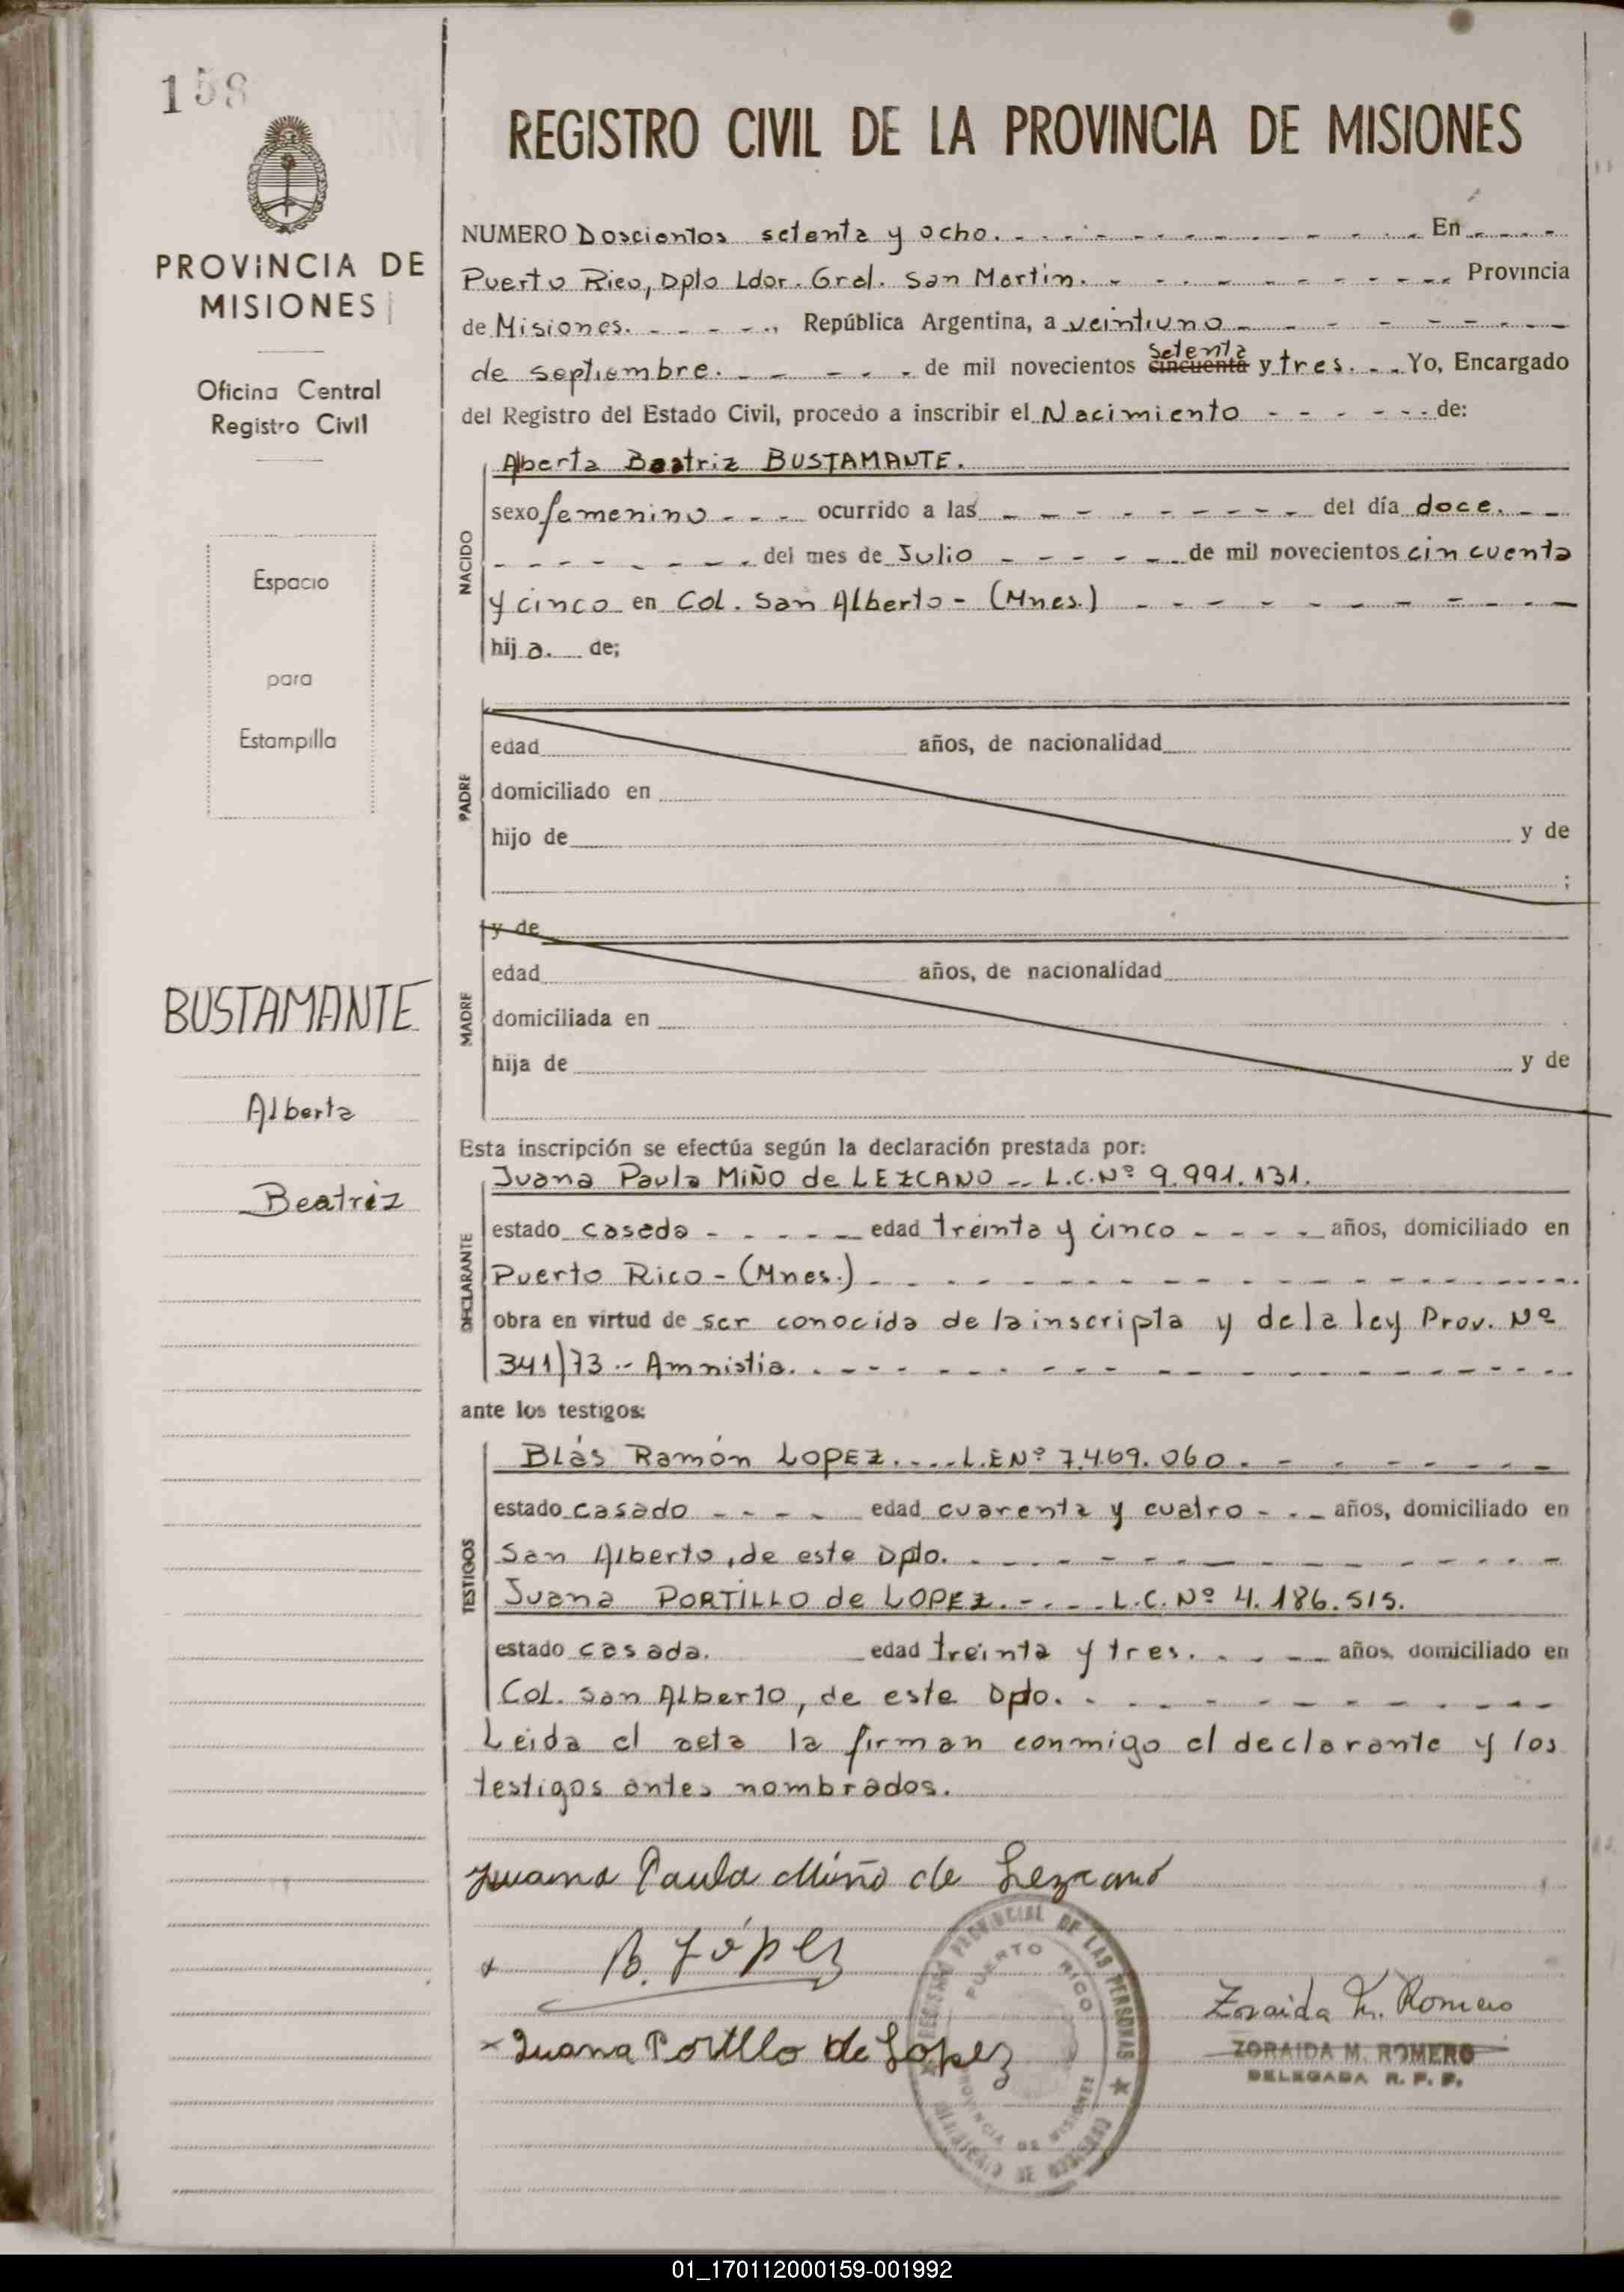 158
PROVINCIA DE
MISIONES
Oficina Central
Registro Civil
Espacio
para
Estampilla
BUSTAMANTE
Alberta
Beatriz
REGISTRO CIVIL DE LA PROVINCIA DE MISIONES
NUMERO Doscientos setenta y ocho. En
Puerto Rico, Dpto Ldor. Gral. San Martin. Provincia
de Misiones. , República Argentina, a veintiuno
setenta
de septiembre. de mil novecientos cincuenta y tres. Yo, Encargado
del Registro del Estado Civil, procedo a inscribir el Nacimiento de:
NACIDO
Alberta Beatriz BUSTAMANTE.
sexo femenino ocurrido a las del día doce.
del mes de Julio de mil novecientos cincuenta
y cinco en Col. San Alberto - (Mnes.)
hij a. de;
PADRE
edad años, de nacionalidad
domiciliado en
hijo de y de
;
MADRE
y de
edad años, de nacionalidad
domiciliada en
hija de y de
Esta inscripción se efectúa según la declaración prestada por:
DECLARANTE
Juana Paula MIÑO de LEZCANO -- L.C.Nº 9.991.131.
estado casada edad treinta y cinco años, domiciliado en
Puerto Rico - (Mnes.)
obra en virtud de ser conocida de la inscripta y de la ley Prov. Nº
341/73.- Amnistia.
ante los testigos:
TESTIGOS
Blás Ramón LOPEZ. L.E Nº 7.469.060.
estado casado edad cuarenta y cuatro años, domiciliado en
San Alberto, de este Dpto.
Juana PORTILLO de LOPEZ. L.C. Nº 4.186.515.
estado casada. edad treinta y tres. años, domiciliado en
Col. San Alberto, de este Dpto.
Leida el acta la firman conmigo el declarante y los
testigos antes nombrados.
Juana Paula Miño de Lezcano
B. López
Juana Portillo de Lopez
REGISTRO PROVINCIAL DE LAS PERSONAS
PUERTO RICO
PROVINCIA DE MISIONES
MINISTERIO DE GOBIERNO
Zoraida M. Romero
ZORAIDA M. ROMERO
DELEGADA R. P. P.
01_170112000159-001992